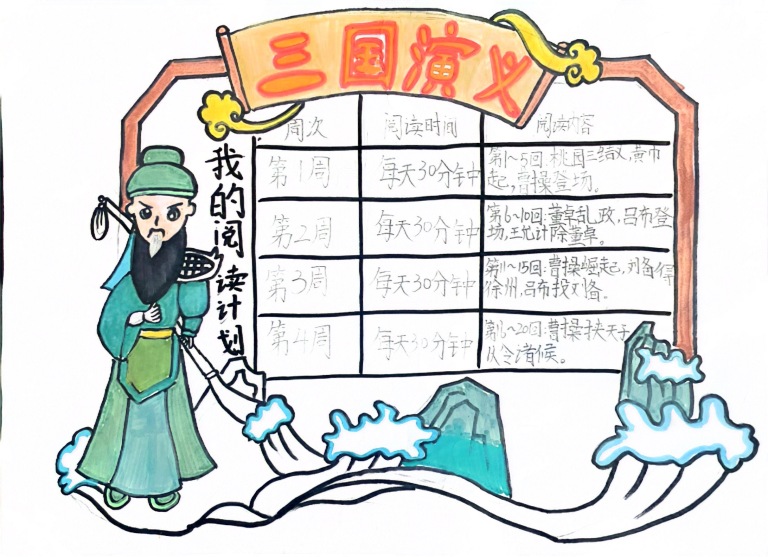 三国演义
我的阅读计划
周次 阅读时间 阅读内容
第1周 每天30分钟 第1~5回:桃园三结义,黄巾
起,曹操登场。
第2周 每天30分钟 第6~10回:董卓乱政,吕布登
场,王允计除董卓。
第3周 每天30分钟 第11~15回:曹操崛起,刘备得
徐州,吕布投刘备。
第4周 每天30分钟 ~20回:曹操挟天子
以令诸候。